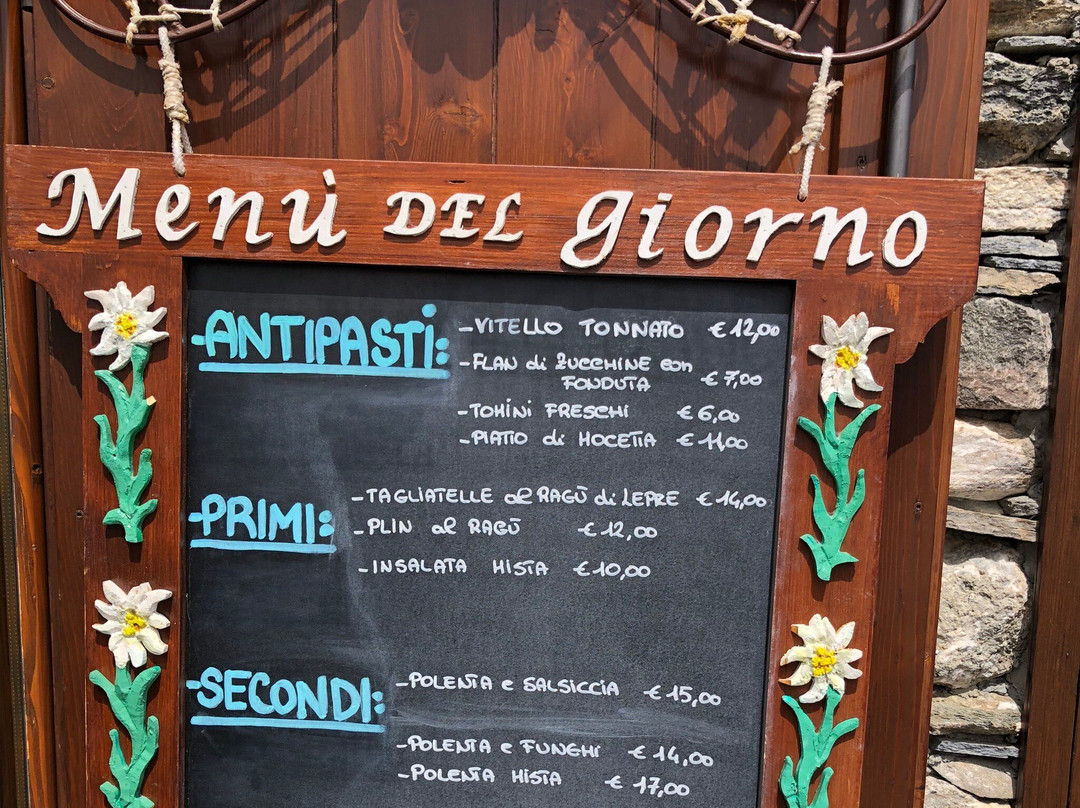 Menù DEL giorno
-ANTIPASTI:
-VITELLO TONNATO €12,00
-FLAN di ZUCCHINE con
FONDUTA €7,00
-TOMINI FRESCHI €6,00
-PIATTO di MOCETTA €11,00
-PRIMI:
-TAGLIATELLE al RAGÙ di LEPRE €14,00
-PLIN al RAGÙ €12,00
-INSALATA MISTA €10,00
-SECONDI:
-POLENTA e SALSICCIA €15,00
-POLENTA e FUNGHI €14,00
-POLENTA MISTA €17,00